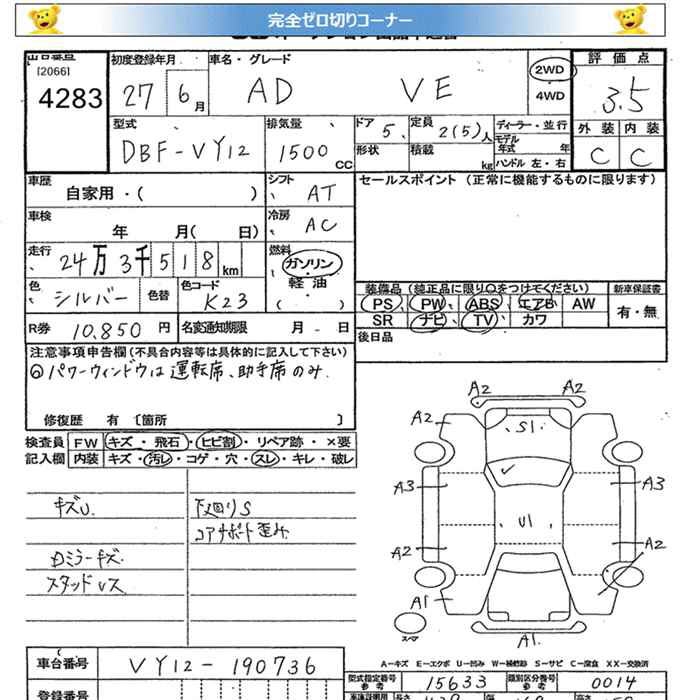 完全ゼロ切りコーナー
出品番号 初度登録年月 車名・グレード 評価点
[2066]
4283 27 6月 AD VE 2WD 4WD 3.5
外装 内装
C C
型式 DBF-VY12 排気量 1500 CC ドア 5 形状 定員 2(5)人 積載 kg ディーラー・並行 モデル年式 年 ハンドル 左・右
車歴 自家用・( ) シフト AT セールスポイント(正常に機能するものに限ります)
車検 年 月( 日) 冷房 AC
走行 24万3千518km 燃料 ガソリン 軽油 ( )
色 シルバー 色替 色コード K23
装備品(純正品に限り〇をつけてください) 新車保証書
PS PW ABS エアB AW 有・無
SR ナビ TV カワ
R券 10,850円 名変通知期限 月 日 後日品
注意事項申告欄(不具合内容等は具体的に記入して下さい)
◎パワーウィンドウは運転席、助手席のみ
修復歴 有 〔箇所 〕
検査員 FW キズ・飛石・ヒビ割・リペア跡・×要
記入欄 内装 キズ・汚レ・コゲ・穴・スレ・キレ・破レ
キズU. 下廻りS
コアサポート歪み
Dミラーキズ
スタッドレス
A2 A2
A2 S1 A2
A3 A3
U1
A2 A2
A1 A1
スペア A1
A-キズ E-エクボ U-凹み W-補修跡 S-サビ C-腐食 XX-交換済
車台番号 VY12-190736
型式指定番号 参考 15633 類別区分番号 参考 0014
登録番号 長さ 幅 高さ